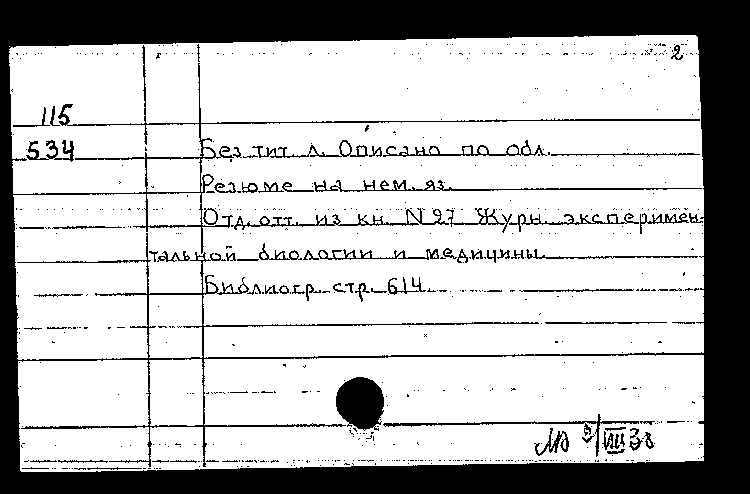 2
115
534
Без тит. л. Описано по обл.
Резюме на нем. яз.
Отд. отт. из кн. N 27 Журн. эксперимен-
тальной биологии и медицины.
Библиогр. стр. 614.